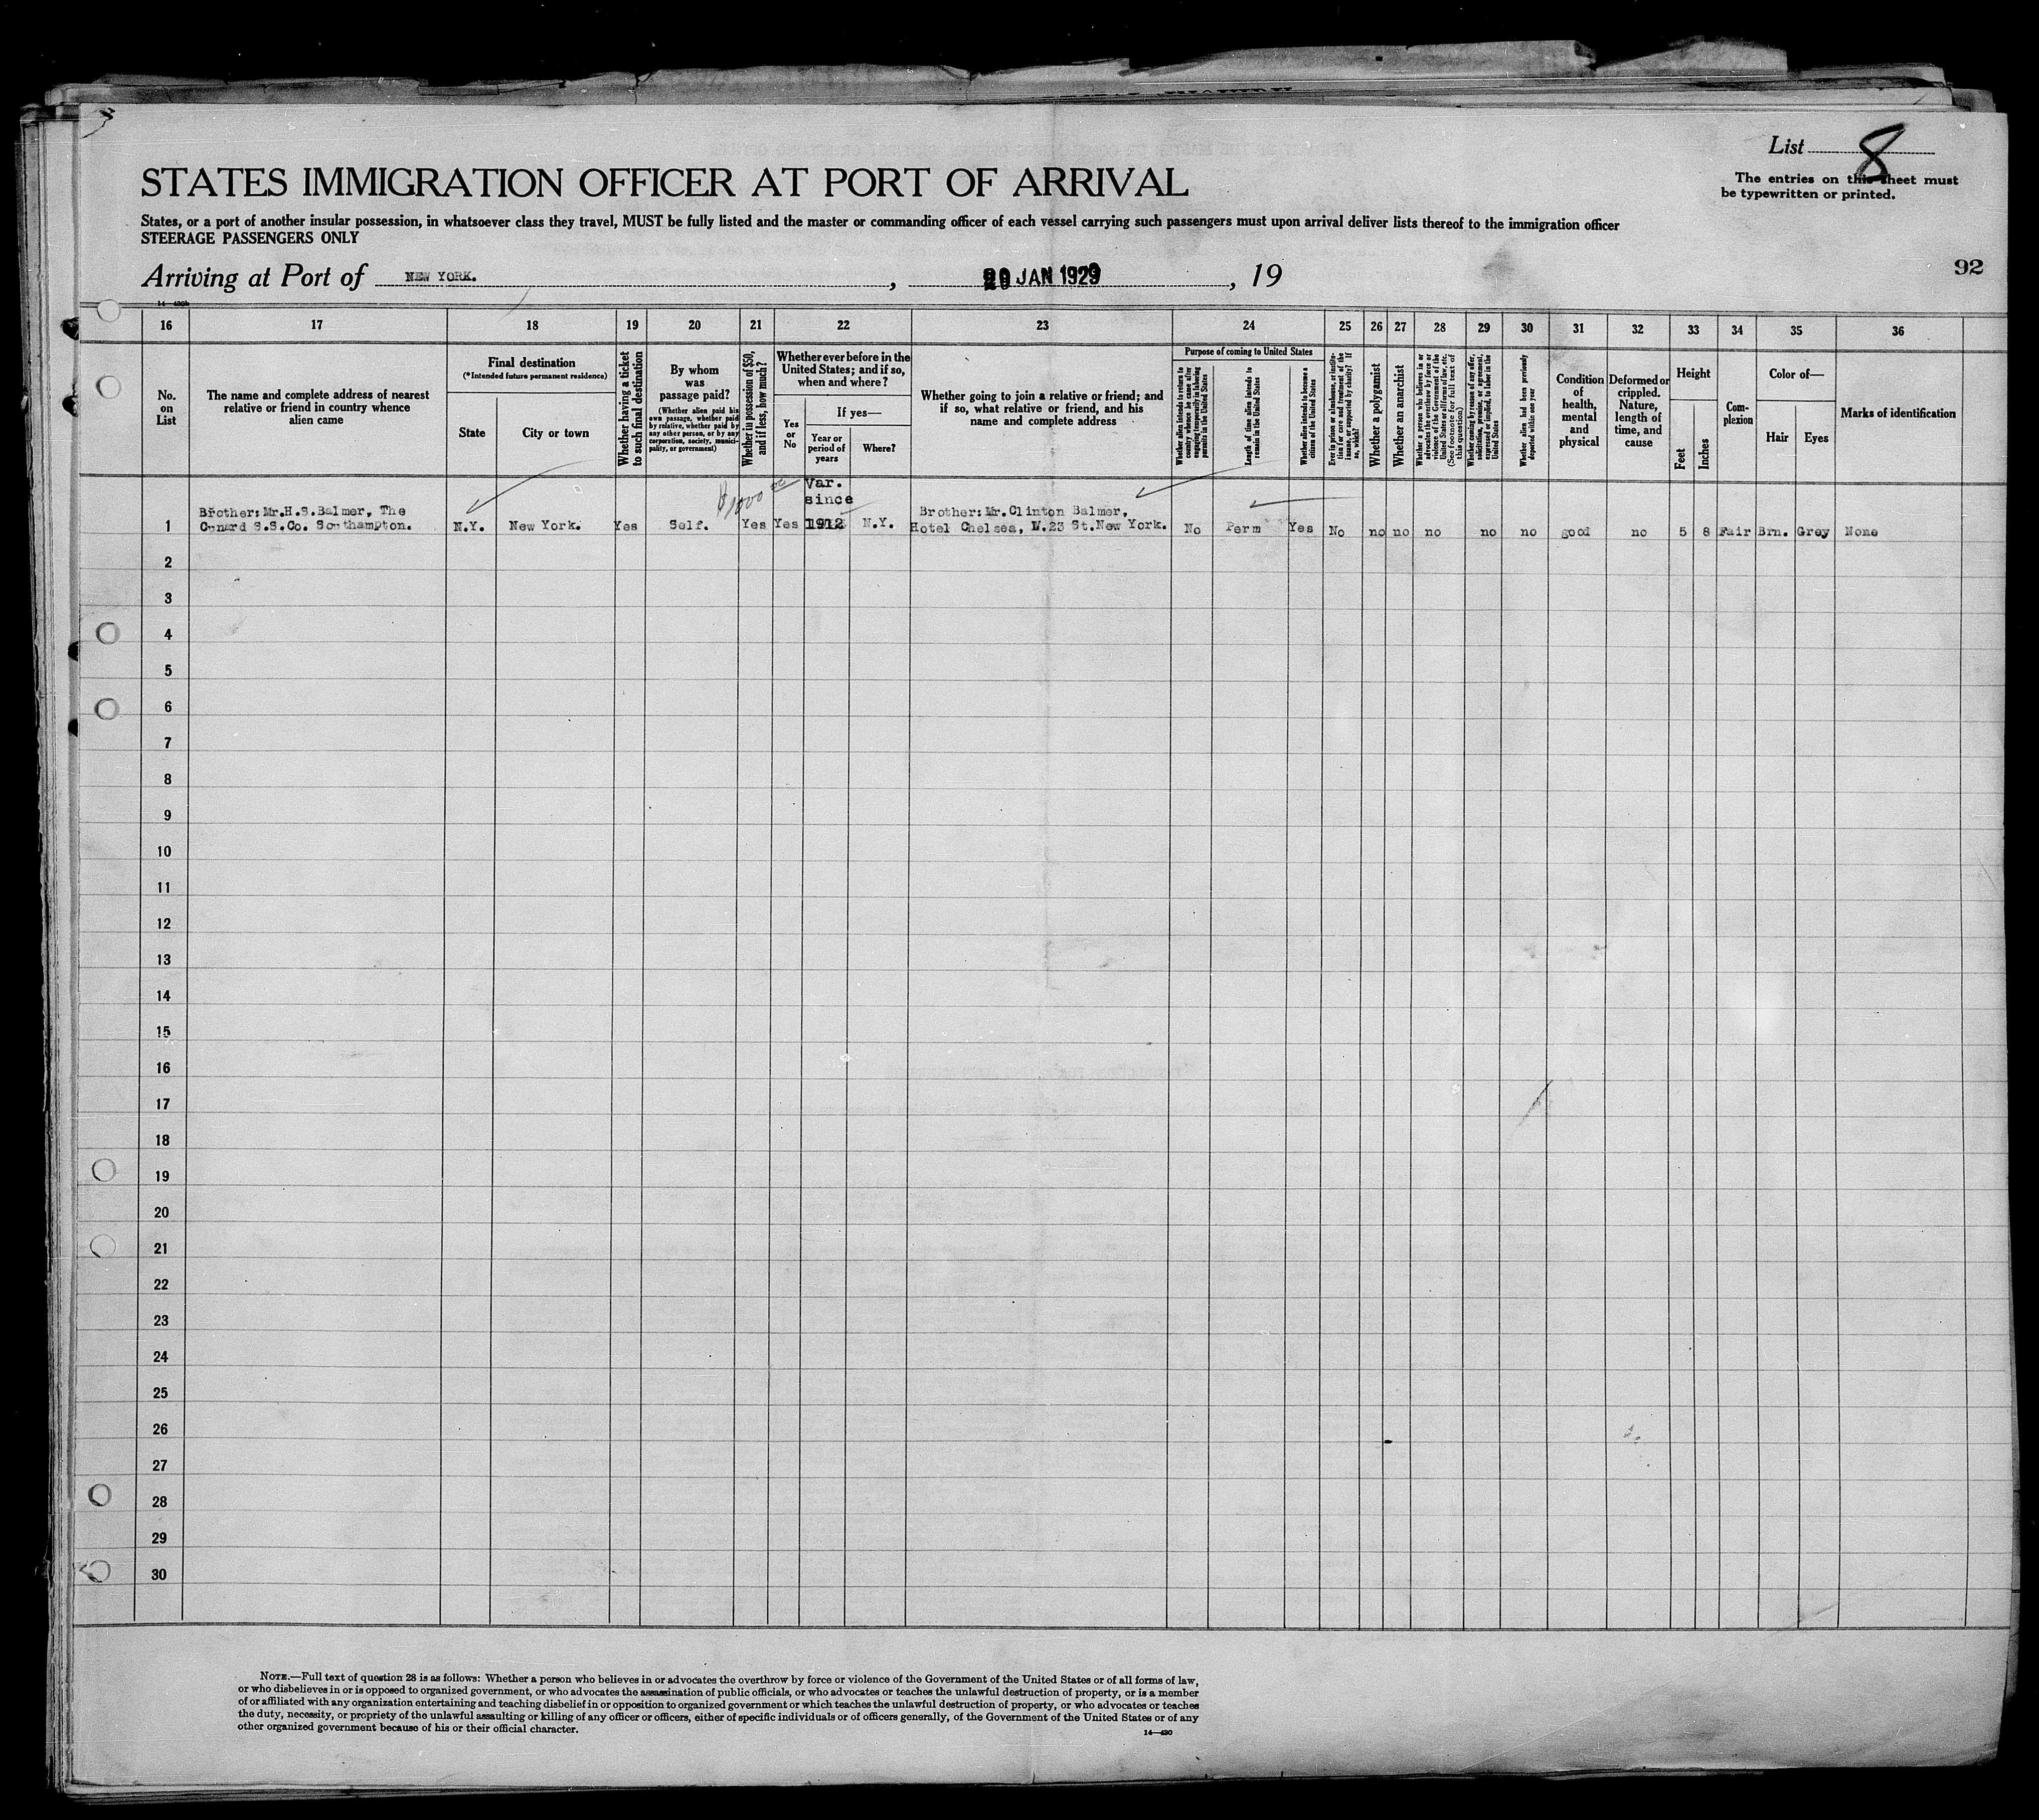 List 8
The entries on this sheet must
be typewritten or printed.
STATES IMMIGRATION OFFICER AT PORT OF ARRIVAL
States, or a port of another insular possession, in whatsoever class they travel, MUST be fully listed and the master or commanding officer of each vessel carrying such passengers must upon arrival deliver lists thereof to the immigration officer
STEERAGE PASSENGERS ONLY
92
Arriving at Port of NEW YORK. , JAN 1929 , 19
16 17 18 19 20 21 22 23 24 25 26 27 28 29 30 31 32 33 34 35 36
No.
on
List
The name and complete address of nearest
relative or friend in country whence
alien came
Final destination
(*Intended future permanent residence)
State
City or town
Whether having a ticket
to such final destination
By whom
was
passage paid?
(Whether alien paid his
own passage, whether paid
by relative, whether paid by
any other person, or by any
corporation, society, munici-
pality, or government)
Whether in possession of $50,
and if less, how much?
Whether ever before in the
United States; and if so,
when and where?
Yes
or
No
If yes—
Year or
period of
years
Where?
Whether going to join a relative or friend; and
if so, what relative or friend, and his
name and complete address
Purpose of coming to United States
Whether alien intends to return to
country whence he came after
engaging temporarily in laboring
pursuits in the United States
Length of time alien intends to
remain in the United States
Whether alien intends to become a
citizen of the United States
Ever in prison or almshouse, or institu-
tion for care and treatment of the
insane, or supported by charity? If
so, which?
Whether a polygamist
Whether an anarchist
Whether a person who believes in or
advocates the overthrow by force or
violence of the Government of the
United States or all forms of law, etc.
(See footnote for full text of
this question)
Whether coming by reason of any offer,
solicitation, promise, or agreement,
expressed or implied, to labor in the
United States
Whether alien had been previously
deported within one year
Condition
of
health,
mental
and
physical
Deformed or
crippled.
Nature,
length of
time, and
cause
Height
Feet
Inches
Com-
plexion
Color of—
Hair
Eyes
Marks of identification
$1000
Var.
since
1 Brother: Mr.H.S.Balmer, The
Cunard S.S.Co. Southampton. N.Y. New York. Yes Self. Yes Yes 1912 N.Y. Brother: Mr.Clinton Balmer,
Hotel Chelsea, W.23 St.New York. No Perm Yes No no no no no no good no 5 8 Fair Brn. Grey None
2
3
4
5
6
7
8
9
10
11
12
13
14
15
16
17
18
19
20
21
22
23
24
25
26
27
28
29
30
NOTE.—Full text of question 28 is as follows: Whether a person who believes in or advocates the overthrow by force or violence of the Government of the United States or of all forms of law,
or who disbelieves in or is opposed to organized government, or who advocates the assassination of public officials, or who advocates or teaches the unlawful destruction of property, or is a member
of or affiliated with any organization entertaining and teaching disbelief in or opposition to organized government or which teaches the unlawful destruction of property, or who advocates or teaches
the duty, necessity, or propriety of the unlawful assaulting or killing of any officer or officers, either of specific individuals or of officers generally, of the Government of the United States or of any
other organized government because of his or their official character.
14—430